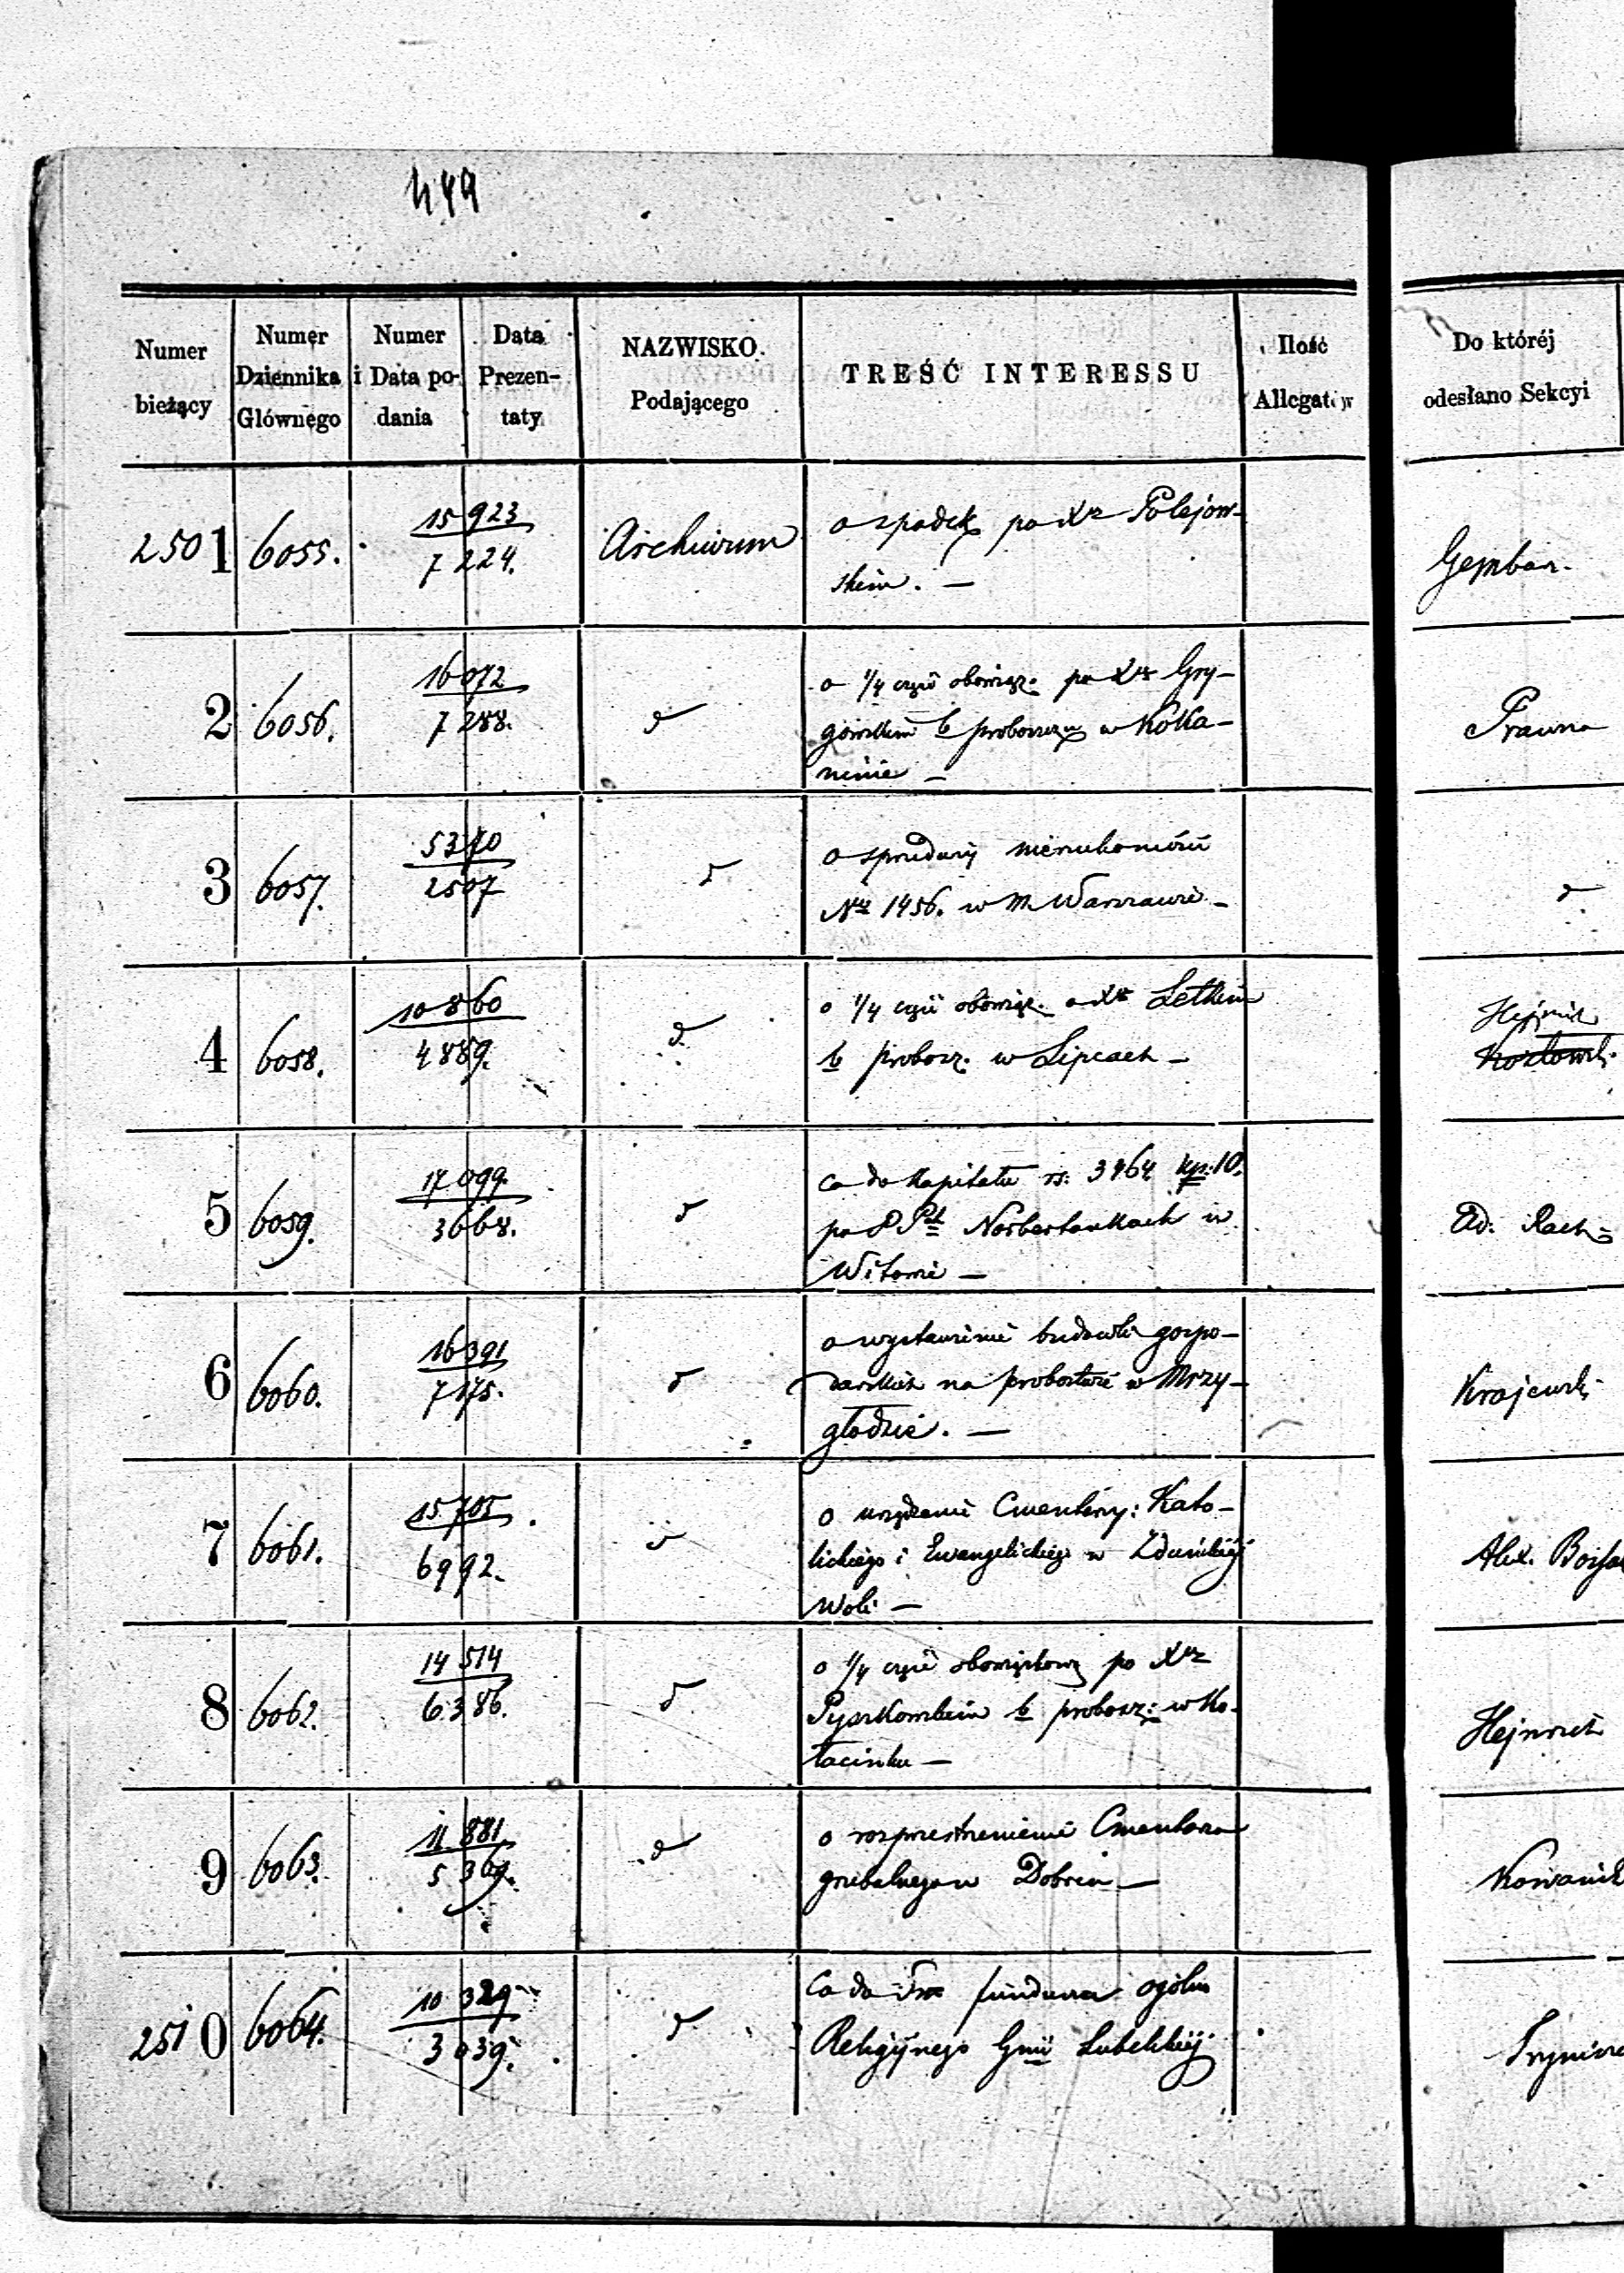 449
Numer bieżący
Numer Dziennika Głównego
Numer i Data podania
Data Prezentaty
NAZWISKO Podającego
TREŚĆ INTERESSU
Ilość Allegatów
Do któréj odesłano Sekcyi
2501 6055. 15923 / 7224. Archiwum
o spadek po Xdz Polejow-
skim. —
Gembar.
2 6056. 16072 / 7288. d
o 1/4 część obowiąz. po Xdz Gry-
gowskim b proboszczu w Koka-
ninie —
Prawna
3 6057. 5370 / 2507 d
o sprzedaży nieruchomości
No 1456. w m. Warszawie —
d
4 6058. 10860 / 4889. d
o 1/4 część obowiąz. o Xdz Letkim
b probosz. w Lipcach —
Kozłowsk.
5 6059. 17099. / 3668. d
co do Kapitału rs. 3464 kp. 10.
po PP Norbertankach w
Witowie —
Ad. Rach
6 6060. 16391 / 7175. d
o wystawienie budowli gospo-
darskich na probostwie w Mrzy-
głodzie. —
Krajewsk.
7 6061. 15705 / 6992. d
o urządzenie Cmentarzy: Kato-
lickiego i Ewangelickiego w Zduńskiéj
Woli —
Alex.
8 6062. 14514 / 6386. d
o 1/4 część obowiązkową po Xdz
Pyszkowskim b probosz: w Ko-
łacinku —
9 6063. 11881 / 5369. d
o rozprzestrzenienie Cmentarza
grzebalnego w Dobrcu —
2510 6064. 10329 / 3039. d
Co do funduszu ogólno
Religijnego Gnii Lubelskiéj